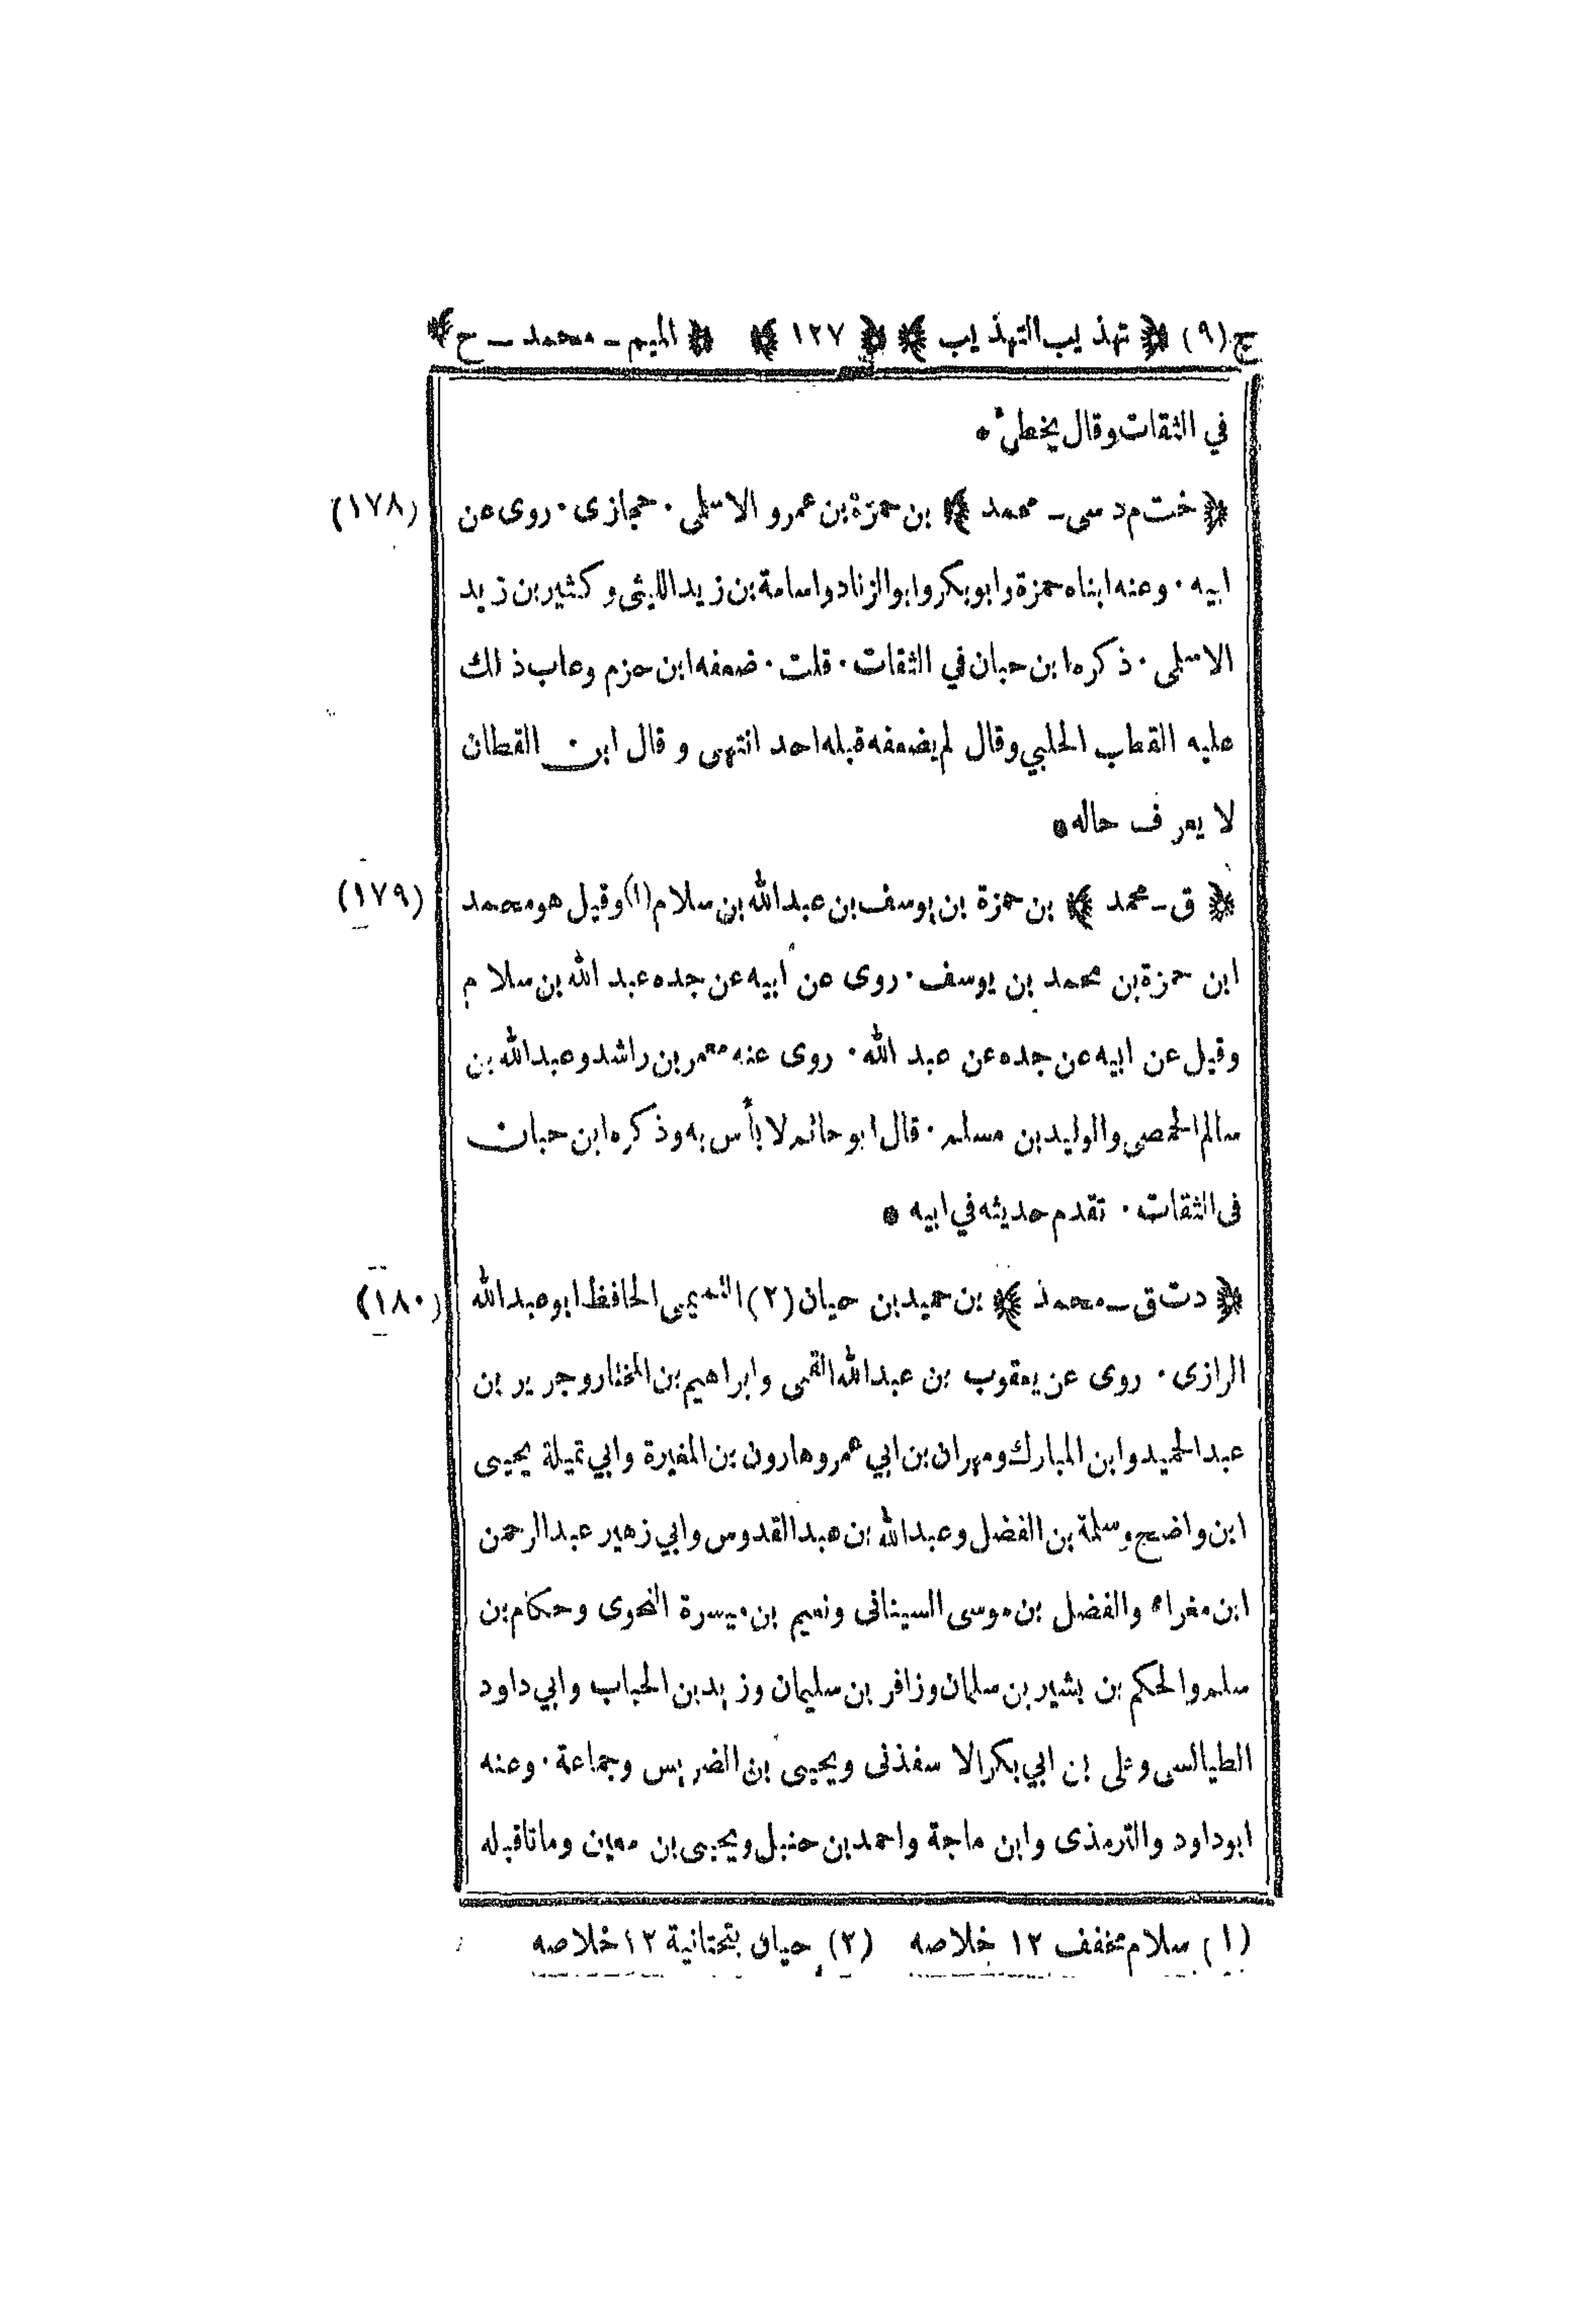 ج (٩) ﴿ تهذيب التهذيب ﴾ ﴿ ١٢٧ ﴾ ﴿ الميم ـ محمد ـ ح ﴾
في الثقات وقال يخطئ *
(١٧٨) ﴿ خت م د سى ـ محمد ﴾ بن حمزة بن عمرو الاسلمى . حجازى . روى عن
ابيه . وعنه ابناه حمزة وابو بكر وابو الزناد واسامة بن زيد الليثى وكثير بن زيد
الاسلمى . ذكره ابن حبان في الثقات . قلت . ضعفه ابن حزم وعاب ذلك
عليه القطب الحلبي وقال لم يضعفه قبله احد انتهى وقال ابن القطان
لا يعرف حاله *
(١٧٩) ﴿ ق ـ محمد ﴾ بن حمزة بن يوسف بن عبد الله بن سلام (١) وقيل هو محمد
ابن حمزة بن محمد بن يوسف . روى عن أبيه عن جده عبد الله بن سلام
وقيل عن ابيه عن جده عن عبد الله . روى عنه معمر بن راشد وعبد الله بن
سالم الحمصى والوليد بن مسلم . قال ابو حاتم لا بأس به وذكره ابن حبان
فى الثقات . تقدم حديثه في ابيه *
(١٨٠) ﴿ د ت ق ـ محمد ﴾ بن حميد بن حيان (٢) التميمى الحافظ ابو عبد الله
الرازى . روى عن يعقوب بن عبد الله القمى وابراهيم بن المختار وجرير بن
عبد الحميد وابن المبارك ومهران بن ابي عمر وهارون بن المغيرة وابي تميلة يحيى
ابن واضح وسلمة بن الفضل وعبد الله بن عبد القدوس وابي زهير عبد الرحمن
ابن مغراء والفضل بن موسى السينانى ونعيم بن ميسرة النحوى وحكام بن
سلم والحكم بن بشير بن سلمان وزافر بن سليمان وزيد بن الحباب وابي داود
الطيالسى وعلى بن ابي بكر الاسفذنى ويحيى بن الضريس وجماعة . وعنه
ابو داود والترمذى وابن ماجة واحمد بن حنبل ويحيى بن معين وماتا قبله
(١) سلام مخفف ١٢ خلاصه (٢) حيان بتحتانية ١٢ خلاصه